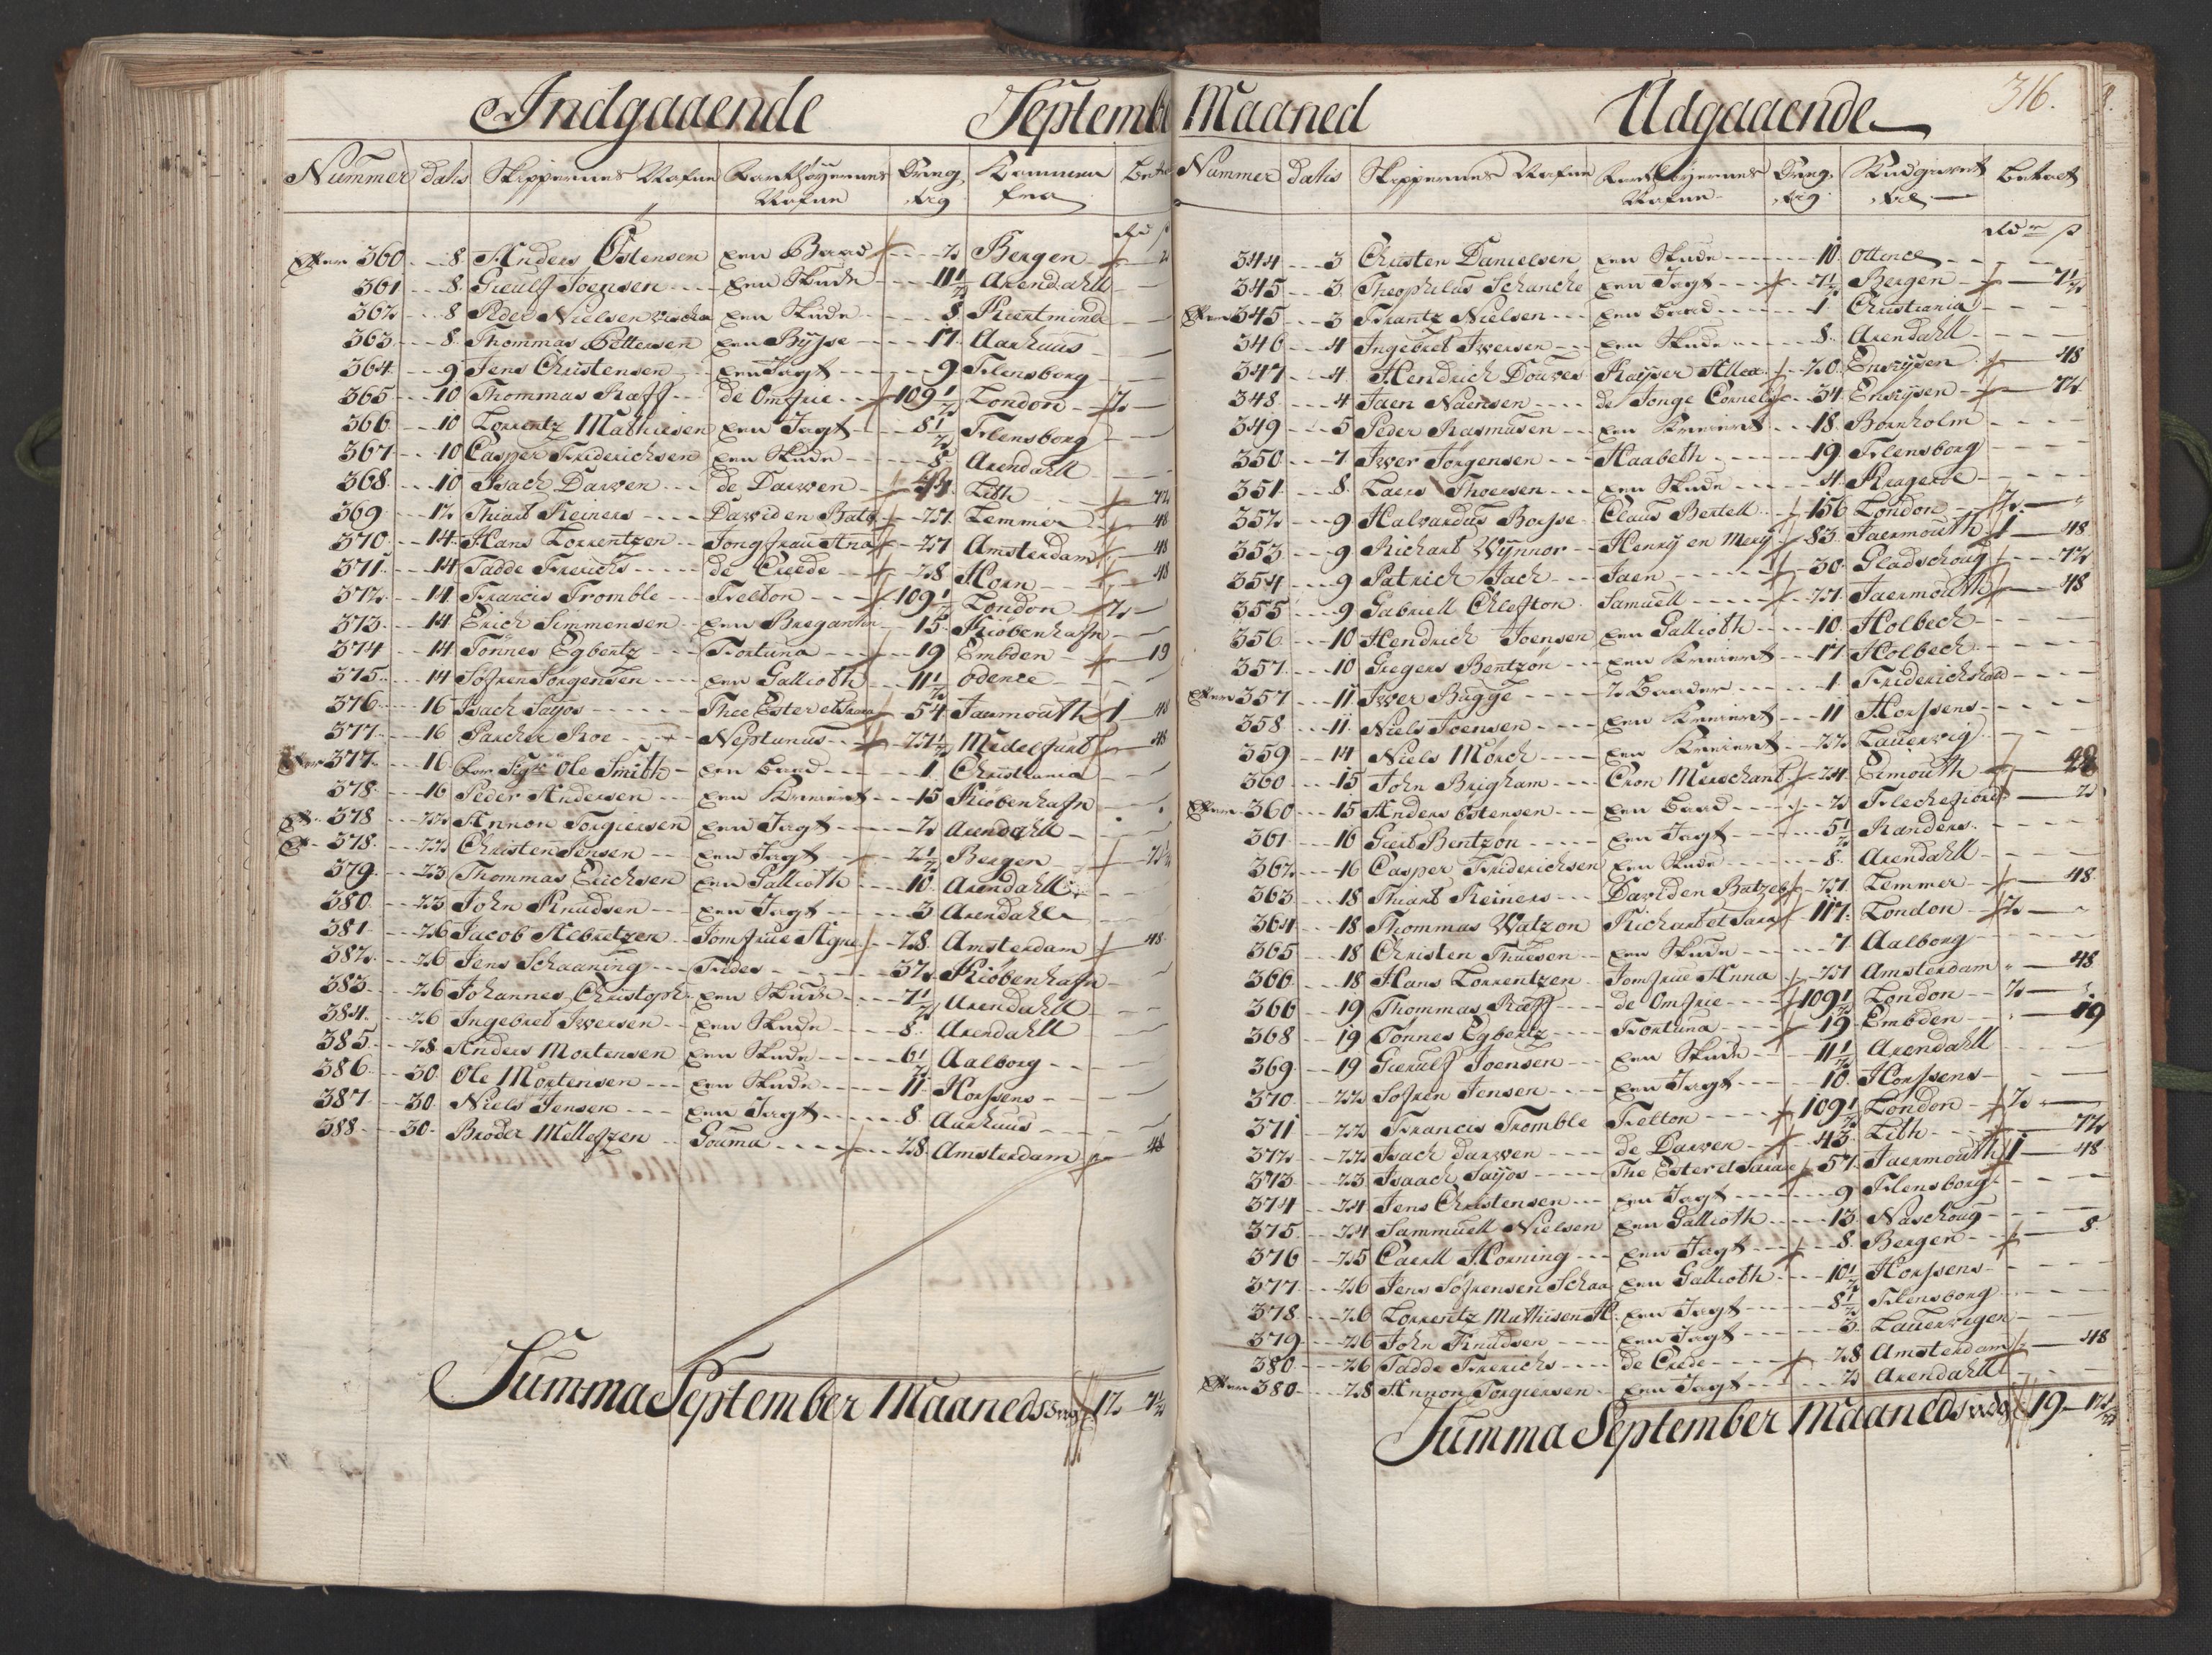 Indgaaende Septemb
Nummer datis Skippernes Nafne Farthøyernes Nafne Dreg. tig Kommen fra
Rd ꝑ
360 8 Anders Östensen een Baad 2 Bergen 2
361 8 Gieulf Joensen een Skude 11½ Arendahll
362 8 Peder Nielsen een Skude 8 Kiertminde
363 8 Thommas Pettersen een Byse 17 Aarhuus
364 9 Jens Christensen een Jagt 9 Flensborg
365 10 Thommas Raff de Omfrie 109½ London 2
366 10 Lorrentz Mathiesen een Jagt 8½ Flensborg
367 10 Casper Friderichsen een Skude 8 Arendahll
368 10 Isach Darwen de Darwen Lith 72
369 12 Thiart Reiners David en Batz 27 Lemmer 48
370 14 Hans Lorrentzen Jongfrau Ana 27 Amsterdam 48
371 14 Tadde Frerichs de Creede 28 Horn 48
372 14 Francis Tromble Felton 109½ London 2
373 14 Erich Simmensen een Bregantin 15 Kiöbenhafn
374 14 Tönnes Egbertz Fortuna 19 Embden 19
375 14 Söfren Jörgensen een Gallioth 11½ Odence
376 16 Isach Sayos Thee Ester et Sara 54 Jarmouth 1 48
377 16 Parcher Roe Neptunus 27½ Medelfurt 48
377 16 Ole Smith een baad 1 Christiania
378 16 Peder Andersen een Kreiert 15 Kiöbenhafn
378 22 Annon Torgiersen een Jagt 2 Arendahll
378 22 Christen Jensen een Jagt 2½ Bergen 2½
379 23 Thommas Erichsen een Gallioth 10 Arendahll
380 23 John Knudsen een Jagt 3 Arendahl
381 26 Jacob Albretzen Jomfrue Agne 28 Amsterdam 48
382 26 Jens Schaaning Fides 32 Kiöbenhafn
383 26 Johannes Christoph. een Skude 7½ Arendahll
384 26 Ingebret Iwersen een Skude 8 Arendahll
385 28 Anders Mortensen een Skude 6½ Aalborg
386 30 Ole Mortensen een Skude 11 Horsens
387 30 Niels Jensen een Jagt 8 Aarhuus
388 30 Broder Melleszen Gouma 28 Amsterdam 48
Summa September Maaneds 12 7½
Maaned Udgaaende 316.
Nummer datis Skippernes Nafne Farthøyernes Nafne Dreg. tig Udgaaet til betalt
Rd ꝑ
344 3 Christen Danielsen een Skude 10 Ottence
345 3 Theophilus Schancke een Jagt 7½ Bergen 7½
345 3 Frantz Nielsen een baad 1 Christiania
346 4 Ingebret Iwersen een Skude 8 Arendahll
347 4 Hendrich Douwes Kayser Allex. 20 Enrysen 48
348 4 Jaen Naensen de Jonge Cornels 34 Enrysen 72
349 5 Peder Rasmusen een Kreiert 18 Bornholm
350 7 Iwer Jörgensen Haabeth 19 Flensborg
351 8 Laers Thoersen een Skude 4 Kragerøe
352 9 Halvardus Borse Claus Bertell 156 London 2
353 9 Richart Wynnor Henry en Mery 83 Jaermouth 1 48
354 9 Patrich Jach Jaen 30 Gladschoug 72
355 9 Gabriell Clefton Samuell 27 Jaermouth 48
356 10 Hendrich Joensen een Gallioth 10 Holbech
357 10 Gregers Bentzon een Kreiert 17 Holbech
357 11 Iwer Bugge 2 Baader 1 Friderichshald
358 11 Niels Joensen een Kreiert 11 Horsens
359 14 Niels Mörch een Kreiert 22 Lauerwig
360 15 John Brigham Cron Merschant 24 Exmouth 48
360 15 Anders Östensen een baad 2 Flechefiord 2
361 16 Giert Bentzön een Jagt 5½ Randers
362 16 Casper Friderichsen een Skude 8 Arendahll
363 18 Thiart Reiners David en Batzeb 27 Lemmer 48
364 18 Thommas Watzon Richart et Sara 117 London 2
365 18 Christen Thuesen een Skude 7 Aalborg
366 18 Hans Lorrentzen Jomfrue Anna 27 Amsterdam 48
366 19 Thommas Raff de Omfrie 109½ London 2
368 19 Tonnes Egbertz Fortuna 19 Embden 19
369 19 Gierulf Joensen een Skude 11½ Arendahll
370 22 Sofren Jensen een Jagt 10 Horsens
371 22 Francis Tromble Felton 109½ London 2
372 22 Isach Darwen de Darwen 43 Lith 72
373 23 Isaach Sayos The Ester et Sarae 57 Jaermouth 1 48
374 24 Jens Christensen een Jagt 9 Flensborg
375 24 Sammuell Nielsen een Gallioth 13 Naschoug
376 25 Carll Horning een Jagt 8 Bergen 8
377 26 Jens Söfrensen Schaa een Gallioth 10½ Horsens
378 26 Lorrentz Mathisen H. een Jagt 8½ Flensborg
379 26 John Knudsen een Jagt 3 Lauerwigen
380 26 Tadde Frerichs de Crede 28 Amsterdam 48
380 28 Annon Torgiersen een Jagt 2 Arendahll
Summa September Maaneds udg 19 12½